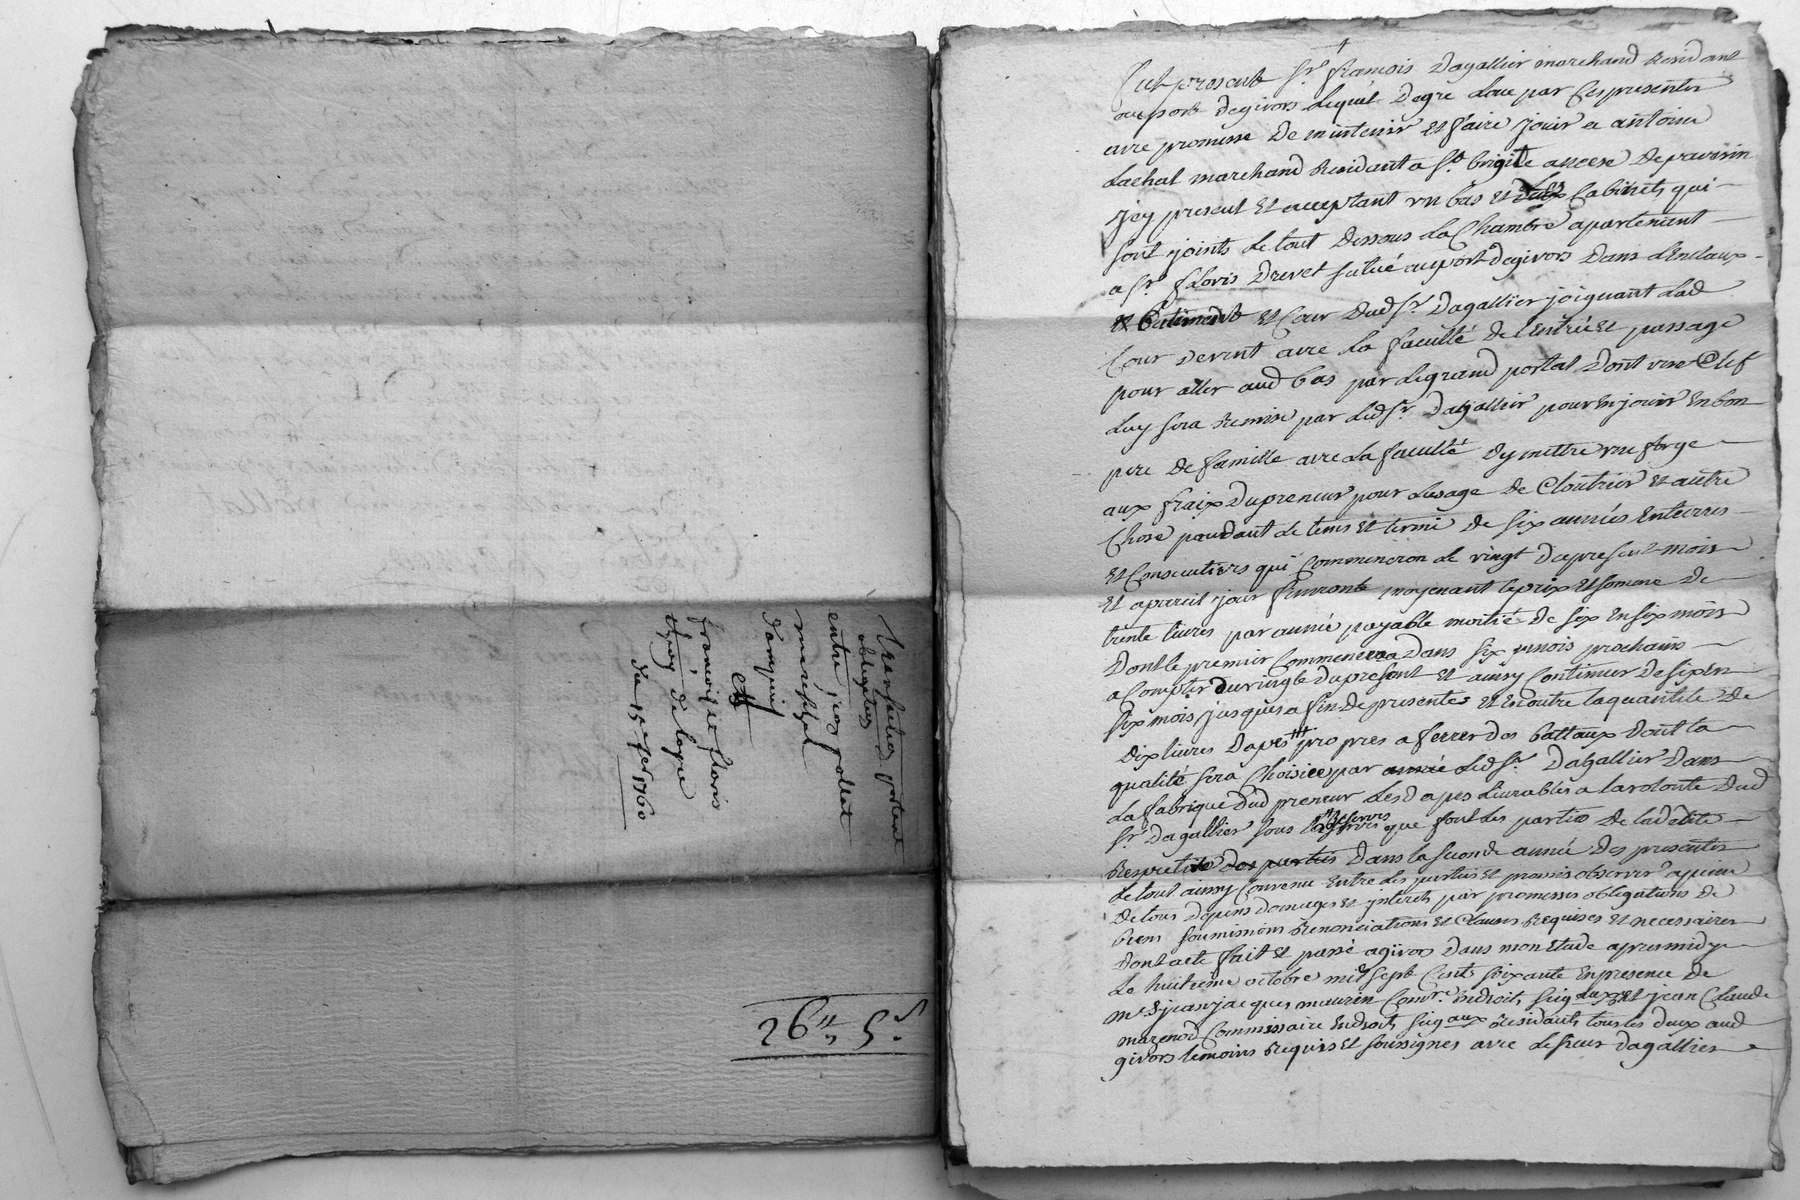 transaction portent
obligation
entre jean pollat
marechal
dampuis
et
francoise floris
epoy de laque
du 15e fer 1760
26" 5 s.
fut present Sr. francois Dagallier marchand Residant
au port degivors Lequel Degre Loue par Ces presentes
avec promesse De mintenir et faire Jouir a antoine
Lachal marchand Residant a Ste brigite annexe De pavezin
Jcy present et acceptant un bas et deux Cabinets qui
sont joints Le tout Dessous La Chambre apartenent
a Sr. floris Drevet situé au port Degivors Dans L'Enclaux
et batiment et Cour Dud Sr. Dagallier joignant Lad
Cour Devent avec La faculté De L'Entrée et passage
pour aller aud bas par Le grand portal Dont une Clef
Luy sera Remise par Led Sr. Dagallier pour En jouir En bon
pere De famille avec La faculté Dy mettre une forge
aux fraix Du preneur pour Lusage De Cloutrier et autre
Chose pendant Le tems et terme De six années Entieres
et Consecutives qui Commenceron Le vingt Du present mois
et apareil jour finiront moyenant le prix et somme De
trente livres par année payable moitié De six En six mois
Dont le premier Commencera Dans six mois prochains
a Compter Du vingt Du present et ainsy Continuer De six En
six mois jusques a fin De presentes et En outre la quantité De
Dix livres Dapes propres a ferrer Des battaux Dont la
qualité sera Choisie par Led Sr. Dagallier Dans
La fabrique Dud preneur Lesd apes Livrables a la volonté Dud
Sr. Dagallier sous Les Reserves que font Les parties De ladite
Dans la seconde année Des presentes
Le tout ainsy Convenu Entre Les parties et promis observer a peine
De tous Depens Domages et jnterets par promesses obligations De
biens soumissions Renonciations et Clauses Requises et necessaires
Dont acte fait et passé a givors Dans mon Etude apres midy
Le huitieme octobre mil sept Cents soixante En presence De
me jean jacques maurin Comre. Endroits seigaux et jean Claude
marenod Commissaire Endroits seigaux Residants tous les deux aud
givors temoins Requis et soussignes avec Le sieur Dagallier